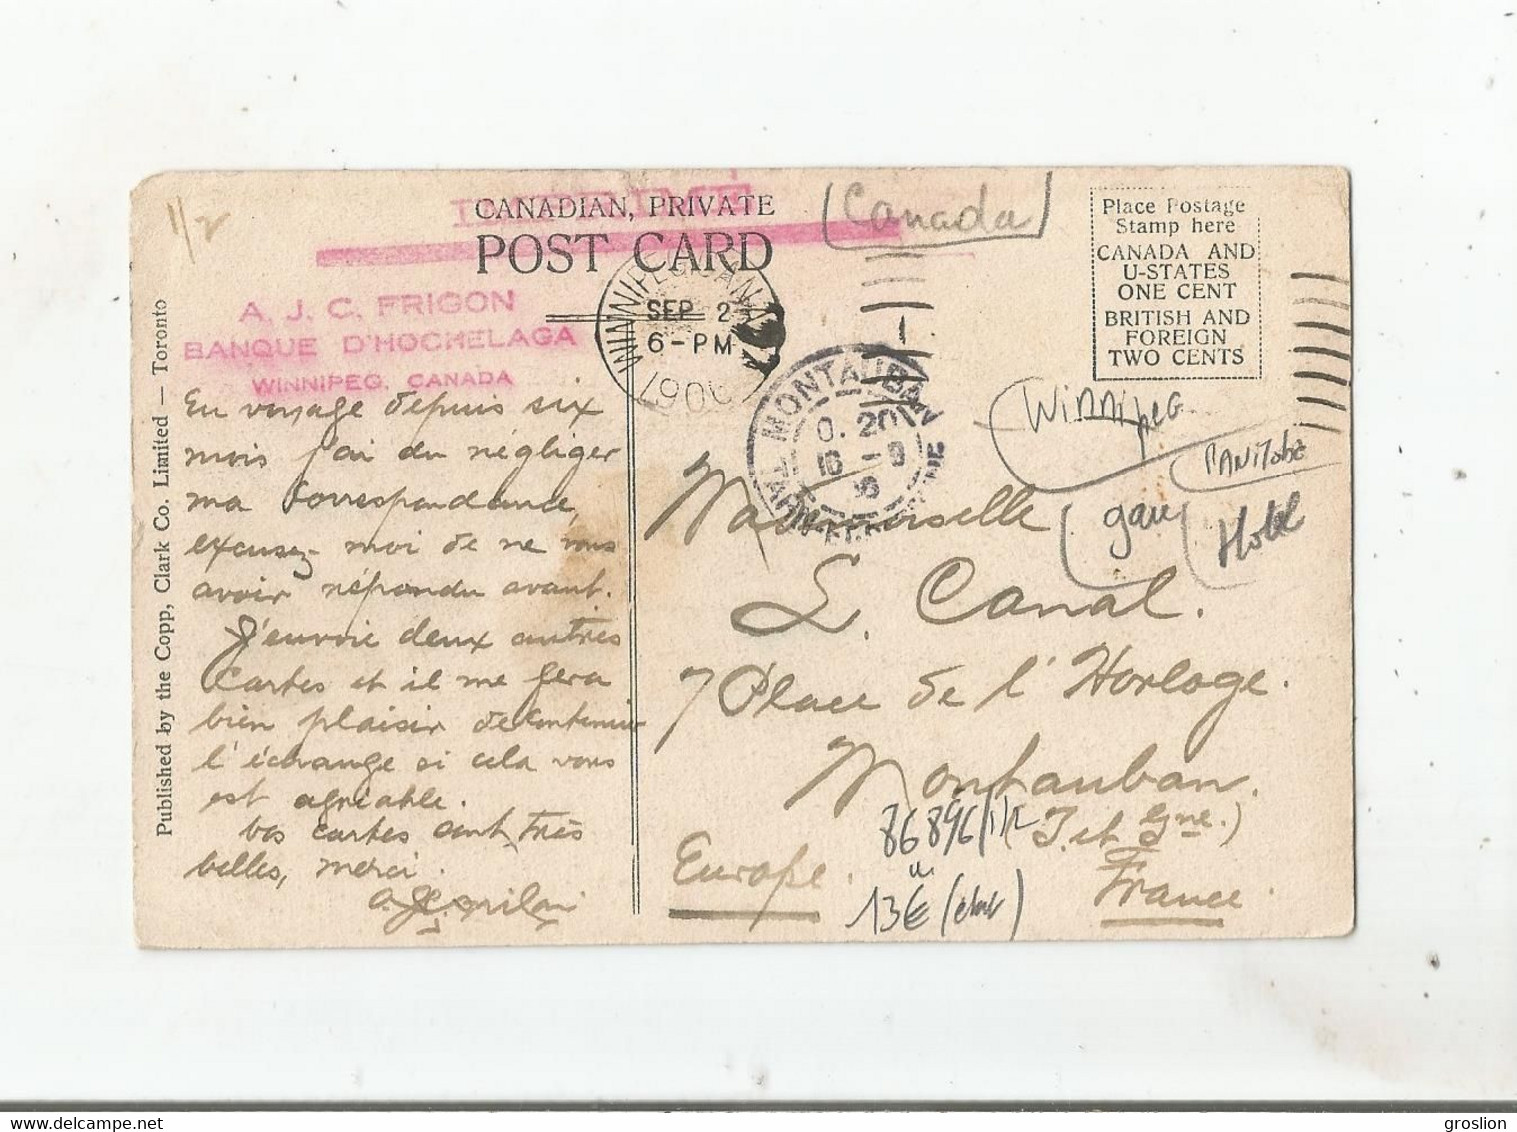 1/2
IMPRIMÉ
CANADIAN, PRIVATE
POST CARD
(Canada)
Place Postage
Stamp here
CANADA AND
U-STATES
ONE CENT
BRITISH AND
FOREIGN
TWO CENTS
A. J. C. FRIGON
BANQUE D'HOCHELAGA
WINNIPEG, CANADA
WINNIPEG, CANADA
SEP 2
6-PM
1906
MONTAUBAN
TARN-ET-GARONNE
Winnipeg
Manitoba
gare
Hotel
Published by the Copp, Clark Co. Limited — Toronto
En voyage depuis six
mois j'ai du négliger
ma correspondance,
excusez-moi de ne vous
avoir répondu avant.
J'envoie deux autres
cartes et il me fera
bien plaisir de continuer
l'échange si cela vous
est agréable.
Vos cartes sont très
belles, merci.
Mademoiselle
L. Canal.
7 Place de l'Horloge.
Montauban.
(T. et Gne.)
Europe.
France.
86896/1/2
13€
groslion